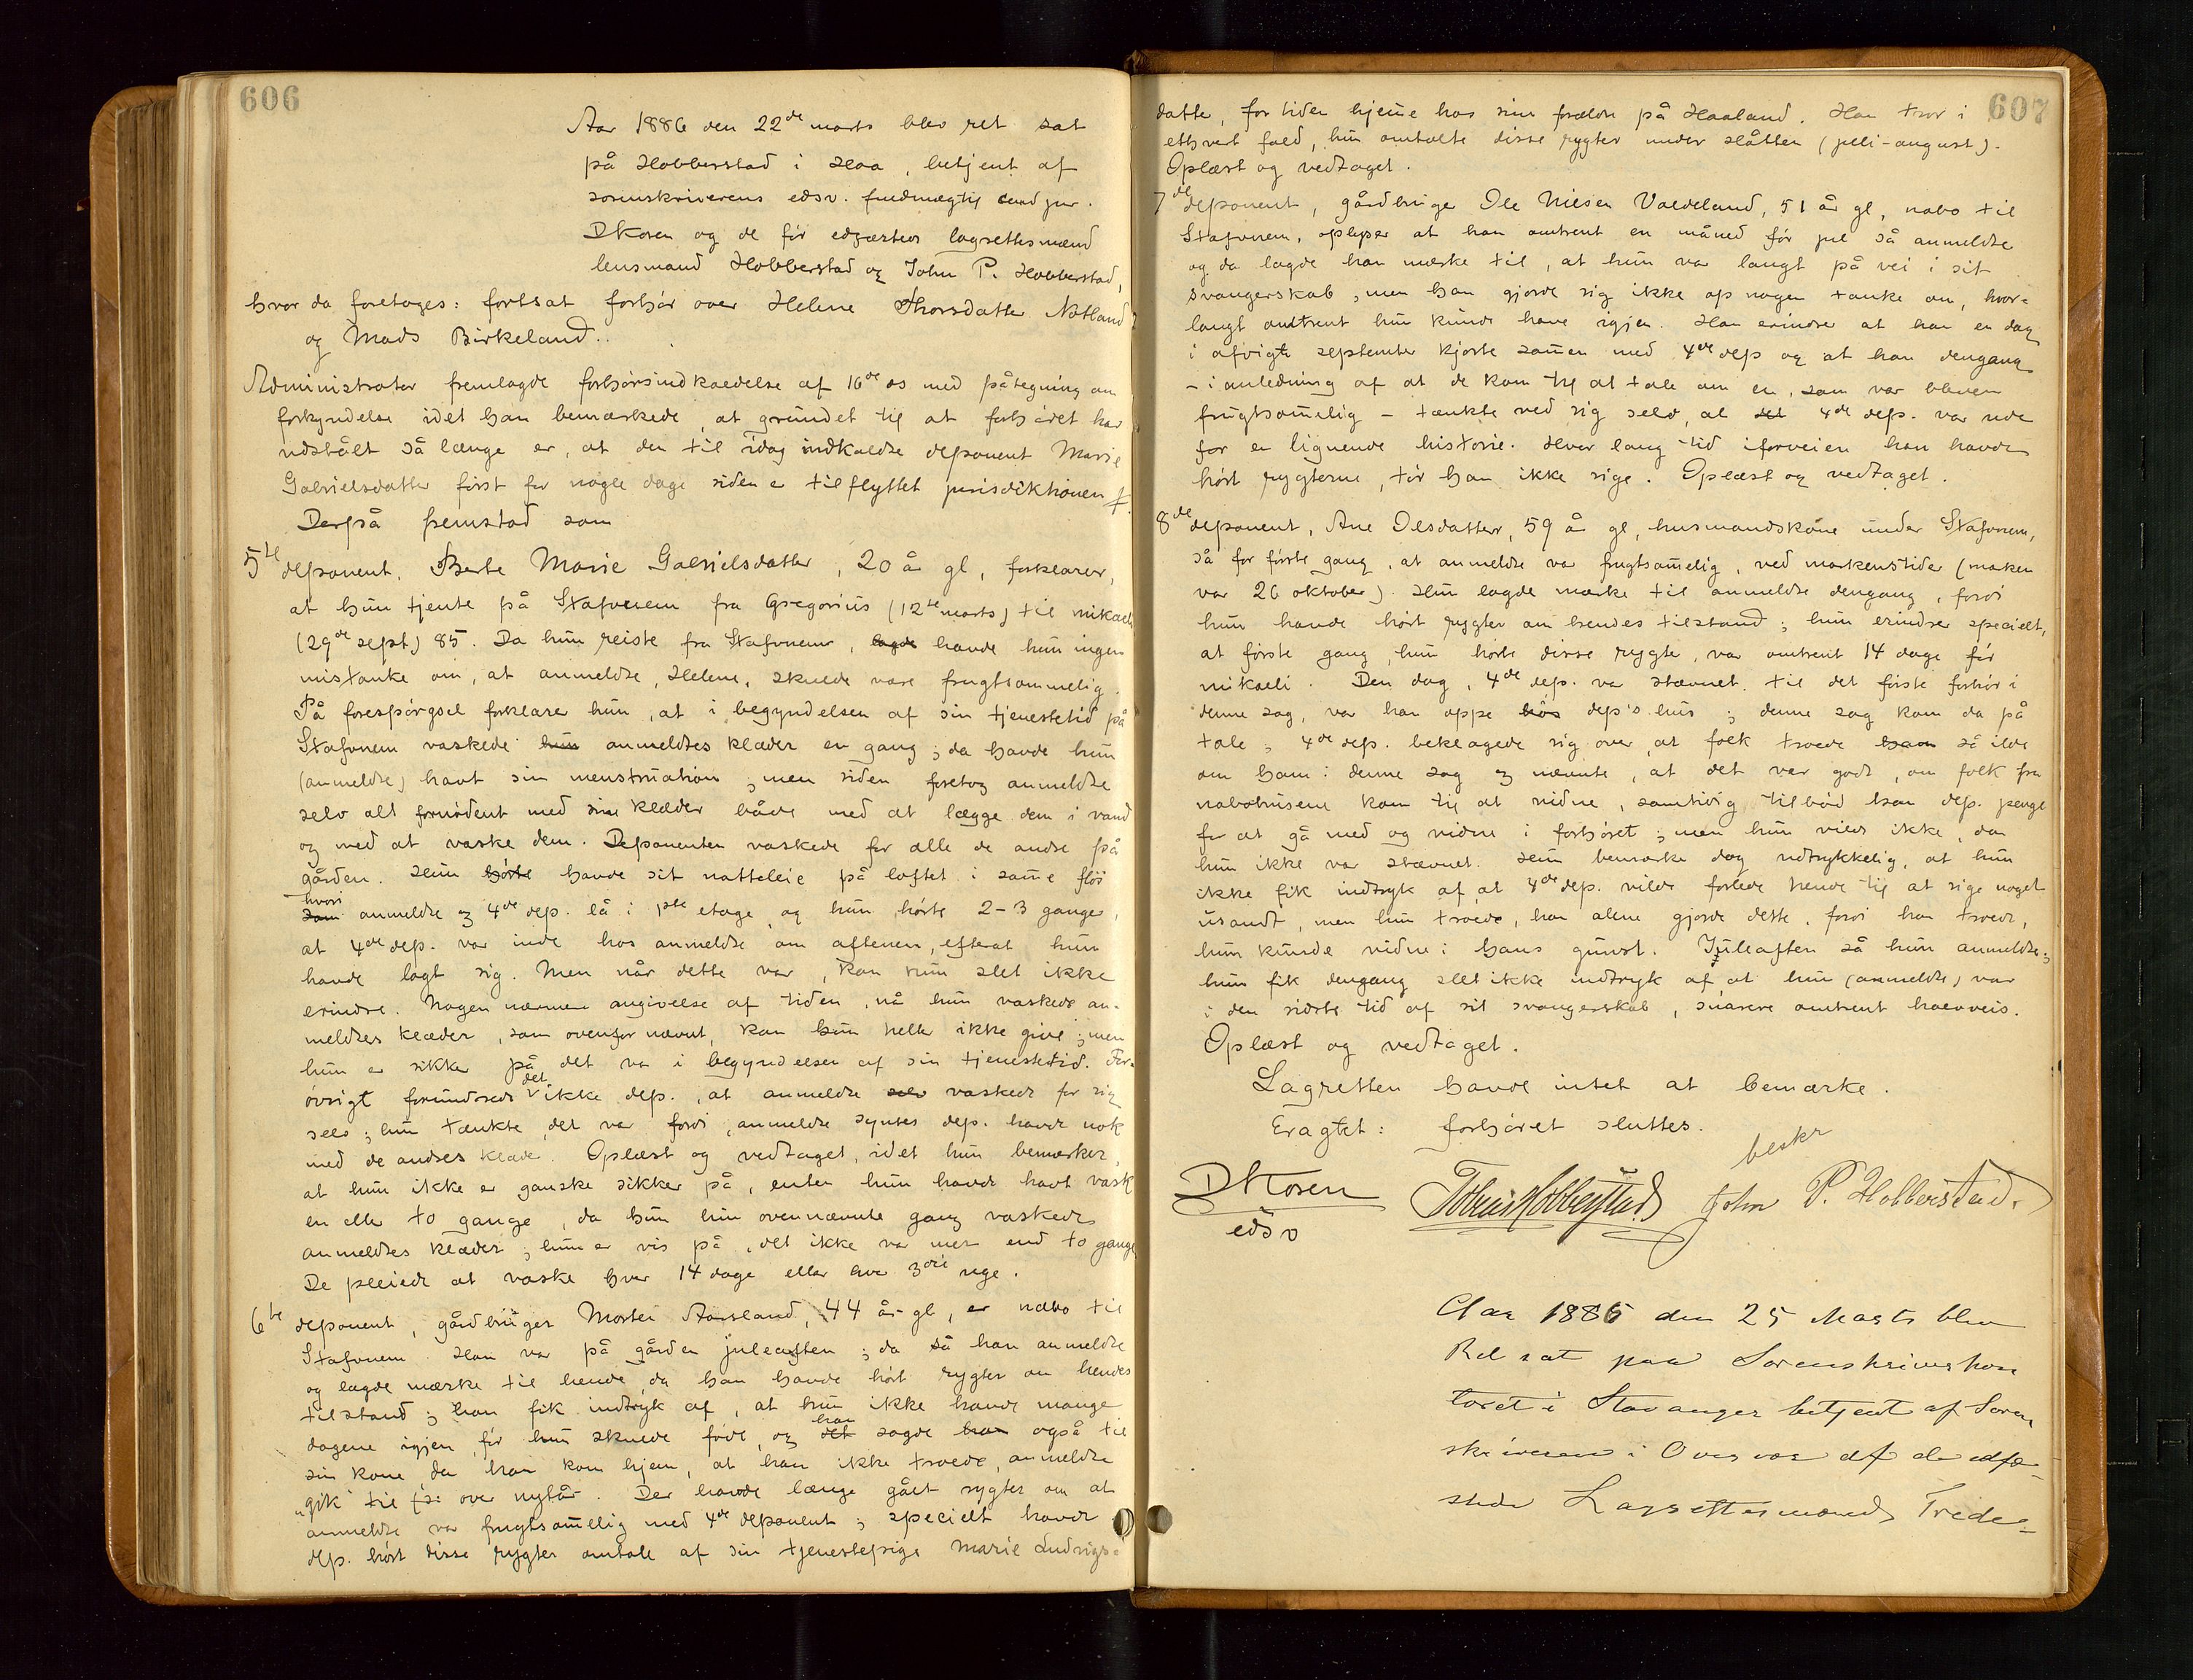 606
Aar 1886 den 22de marts blev ret sat
på Hobberstad i Haa, betjent af
sorenskriverens edsv. fuldmægtig cand jur.
DKosen og de før edfæstede lagrettesmænd
lensmand Hobberstad og John P. Hobberstad,
hvor da foretoges: fortsat forhør over Helene Thorsdatter Netland
og Mads Birkeland.
Administrator fremlagde forhørsindkaldelse af 16de ds med påtegning om
forkyndelse idet han bemærkede, at grunden til at forhøret har
udstået så længe er, at den til idag indkaldte deponent Marie
Gabrielsdatter først for nogle dage siden er tilflyttet jurisdiktionen
Derpå fremstod som
5te deponent, Berte Marie Gabrielsdatter, 20 år gl, forklarer,
at hun tjente på Stafnem fra Gregorius (12te marts) til mikaeli
(29de sept) 85. Da hun reiste fra Stafnem, lagde havde hun ingen
mistanke om, at anmeldte, Helene, skulde være frugtsommelig.
På forespørgsel forklarer hun, at i begyndelsen af sin tjenestetid på
Stafnem vaskede hun anmeldtes klæder en gang; da havde hun
(anmeldte) havt sin menstruation, men siden foretog anmeldte
selv alt fornødent med sine klæder både med at lægge dem i vand
og med at vaske dem. Deponenten vaskede for alle de andre på
gården. Hun hørte havde sit natteleie på loftet i same fløi
hvori
som anmeldte og 4de dep. lå i 1ste etage, og hun hørte 2-3 gange,
at 4de dep. var inde hos anmeldte om aftenen, efterat hun
havde lagt sig. Men når dette var, kan hun slet ikke
erindre. Nogen nærmere angivelse af tiden, når hun vaskede an-
meldtes klæder, som ovenfor nævnt, kan hun heller ikke give; men
hun er sikker på det var i begyndelsen af sin tjenestetid. For-
det
øvrigt forundrede ikke dep., at anmeldte selv vaskede for sig
selv; hun tænkte, det var fordi, anmeldte syntes dep. havde nok
med de andres klæder. Oplæst og vedtaget, idet hun bemærker,
at hun ikke er ganske sikker på, enten hun havde havt vask
en eller to gange, da hun hin ovennævnte gang vaskede
anmeldtes klæder; hun er vis på, det ikke var mer end to gange
De pleiede at vaske hver 14 dage eller hver 3die uge.
6te deponent, gårdbruger Morten Aarsland, 44 år gl, er nabo til
Stafnem. Han var på gården juleaften; da så han anmeldte
og lagde mærke til hende, da han havde hørt rygter om hendes
tilstand; han fik indtryk af, at hun ikke havde mange
han
dagene igjen, før hun skulde føde, og det sagde han også til
sin kone, da han kom hjem, at han ikke troede, anmeldte
"gik" til (: over nytår. Der havde længe gået rygter om at
anmeldte var frugtsomelig med 4de deponent; specielt havde
dep. hørt disse rygter omtale af sin tjenestepige Marie Ludvigs-
607
datter, for tiden hjeme hos sine forældre på Haaland. Han tror i
ethvert fald, hun omtalte disse rygter under slåtten (juli-august).
Oplæst og vedtaget.
7de deponent, gårdbruger Ole Nilsen Varldeland, 51 år gl, nabo til
Stafnem, oplyser at han omtrent en måned før jul så anmeldte
og da lagde han mærke til, at hun var langt på vei i sit
svangerskab, men han gjorde sig ikke op nogen tanke om, hvor-
langt omtrent hun kunde have igjen. Han erindrer at han en dag
i afvigte september kjørte samen med 4de dep og at han dengang
- i anledning af at de kom til at tale om en, som var bleven
frugtsomelig - tænkte ved sig selv, at det 4de dep. var ude
for en lignende historie. Hvor lang tid iforveien han havde
hørt rygterne, tør han ikke sige. Oplæst og vedtaget.
8de deponent, Ane Olsdatter, 59 år gl, husmandskone under Stafnem,
så for første gang, at anmeldte var frugtsomelig, ved markenstider (marken
var 26 oktober). Hun lagde mærke til anmeldte dengang, fordi
hun havde hørt rygter om hendes tilstand; hun erindrer specielt,
at første gang, hun hørte disse rygter, var omtrent 14 dage før
mikaeli. Den dag, 4de dep. var stævnet til det første forhør i
denne sag, var han oppe hos dep's hus; denne sag kom da på
tale; 4de dep. beklagede sig over, at folk troede ham så ilde
om ham i denne sag og nævnte, at det var godt, om folk fra
nabohusene kom til at vidne, samtidig tilbød han dep. penge
for at gå med og vidne i forhøret; men hun vilde ikke, da
hun ikke var stævnet. Hun bemærker dog udtrykkelig, at hun
ikke fik indtryk af, at 4de dep. vilde forlede hende til at sige noget
usandt, men hun troede, han alene gjorde dette, fordi han troede,
hun kunde vidne i hans gunst. Juleaften så hun anmeldte;
hun fik dengang slet ikke indtryk af, at hun (anmeldte) var
i den sidste tid af sit svangerskab, snarere omtrent halvveis.
Oplæst og vedtaget.
Lagretten havde intet at bemærke.
Eragtet: forhøret sluttes.
beskr
DKosen
edsv
Tobias Hobberstad John P. Hobberstad.
Aar 1886 den 25 Marts blev
Ret sat paa Sorenskriverkon
toret i Stavanger betjent af Soren
skriveren i Overvær af de edfæ-
stede Lagrettesmænd Frede-